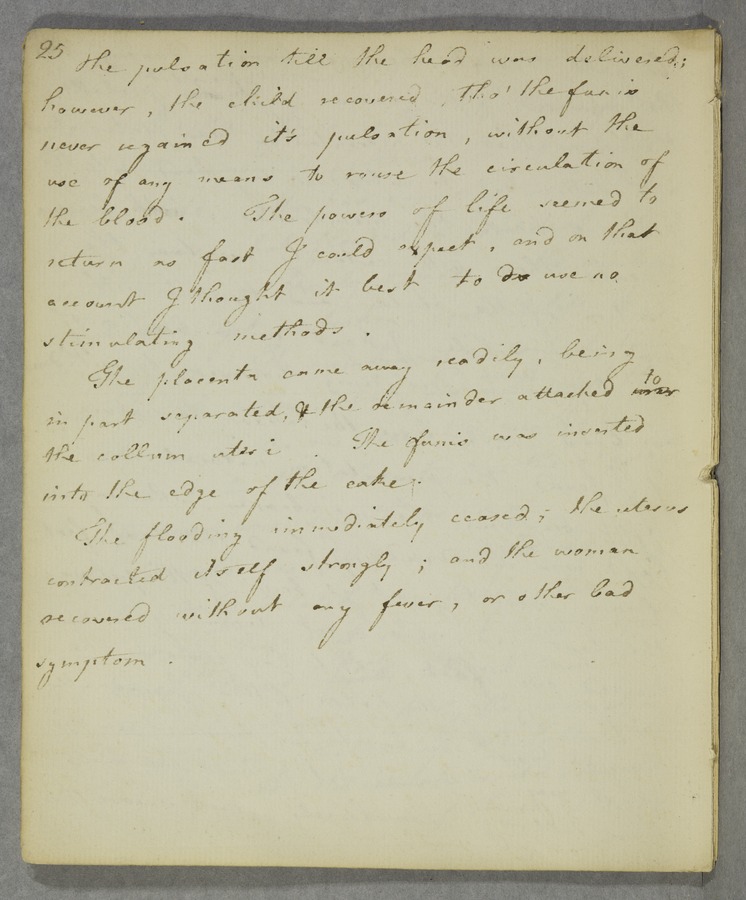 25 the pulsation till the head was delivered;
however, the child recovered, tho' the funis
never regained it's pulsation, without the
use of any means to rouse the circulation of
the blood. The powers of life seemed to
return as fast I could expect, and on that
account I thought it best to do use no
stimulating methods.
The placenta came away readily, being
in part separated, & the remainder attached to
the collum uteri. The funis was inserted
into the edge of the cake.
The flooding immediately ceased; the uterus
contracted itself strongly; and the woman
recovered without any fever, or other bad
symptom.